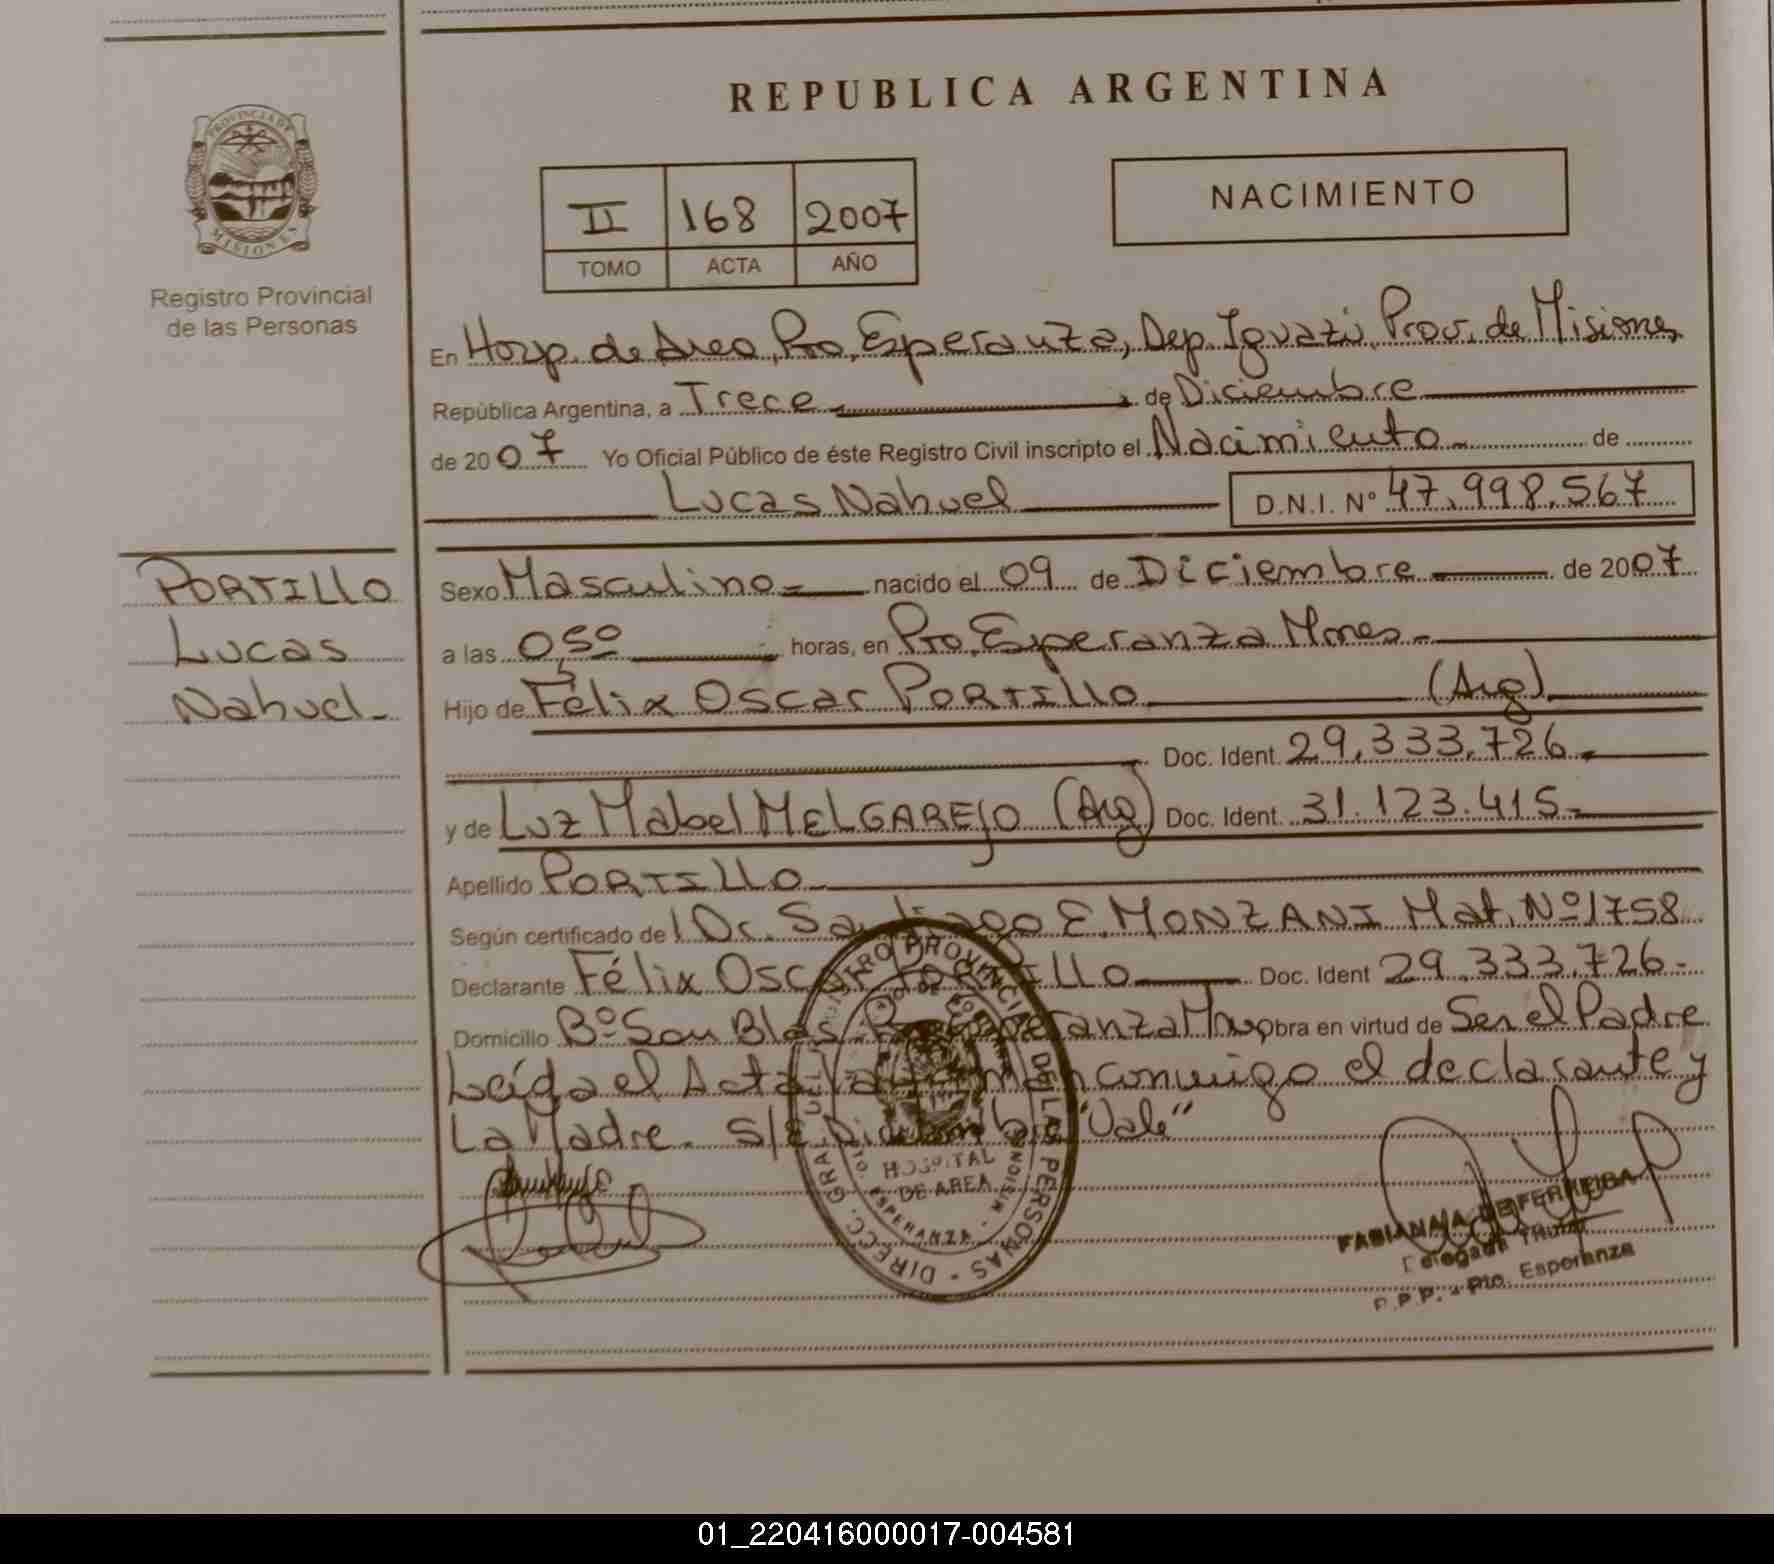 REPUBLICA ARGENTINA
PROVINCIA DE
MISIONES
Registro Provincial
de las Personas
II 168 2007
TOMO ACTA AÑO
NACIMIENTO
En Hosp. de Area, Pto. Esperanza, Dep. Iguazú, Prov. de Misiones
República Argentina, a Trece de Diciembre
de 2007 Yo Oficial Público de éste Registro Civil inscripto el Nacimiento de
Lucas Nahuel D.N.I. Nº 47.998.567
PORTILLO
Lucas
Nahuel
Sexo Masculino nacido el 09 de Diciembre de 2007
a las horas, en Pto. Esperanza Mnes
Hijo de Félix Oscar PORTILLO (Arg)
Doc. Ident. 29.333.726
y de Luz Mabel MELGAREJO (Arg) Doc. Ident. 31.123.415
Apellido PORTILLO
Según certificado del Dr. Santiago E. MONZANI Mat. Nº 1758
Declarante Félix Oscar PORTILLO Doc. Ident 29.333.726
Domicilio Bº San Blas Pto. Esperanza Mnes obra en virtud de Ser el Padre
Leída el Acta la firman conmigo el declarante y
La Madre. S/E Diciembre "Vale"
HOSPITAL
DE AREA
ESPERANZA
FABIANA A. DE FERREIRA
Delegada Titular
R.P.P. - Pto. Esperanza
01_220416000017-004581